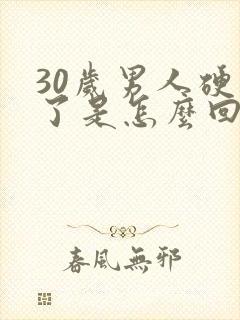 30歲男人硬
了是怎麼回
春風無邪